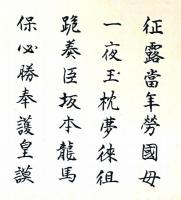 征露當年勞國母
一夜玉枕夢徠徂
跪奏臣坂本龍馬
保必勝奉護皇謨